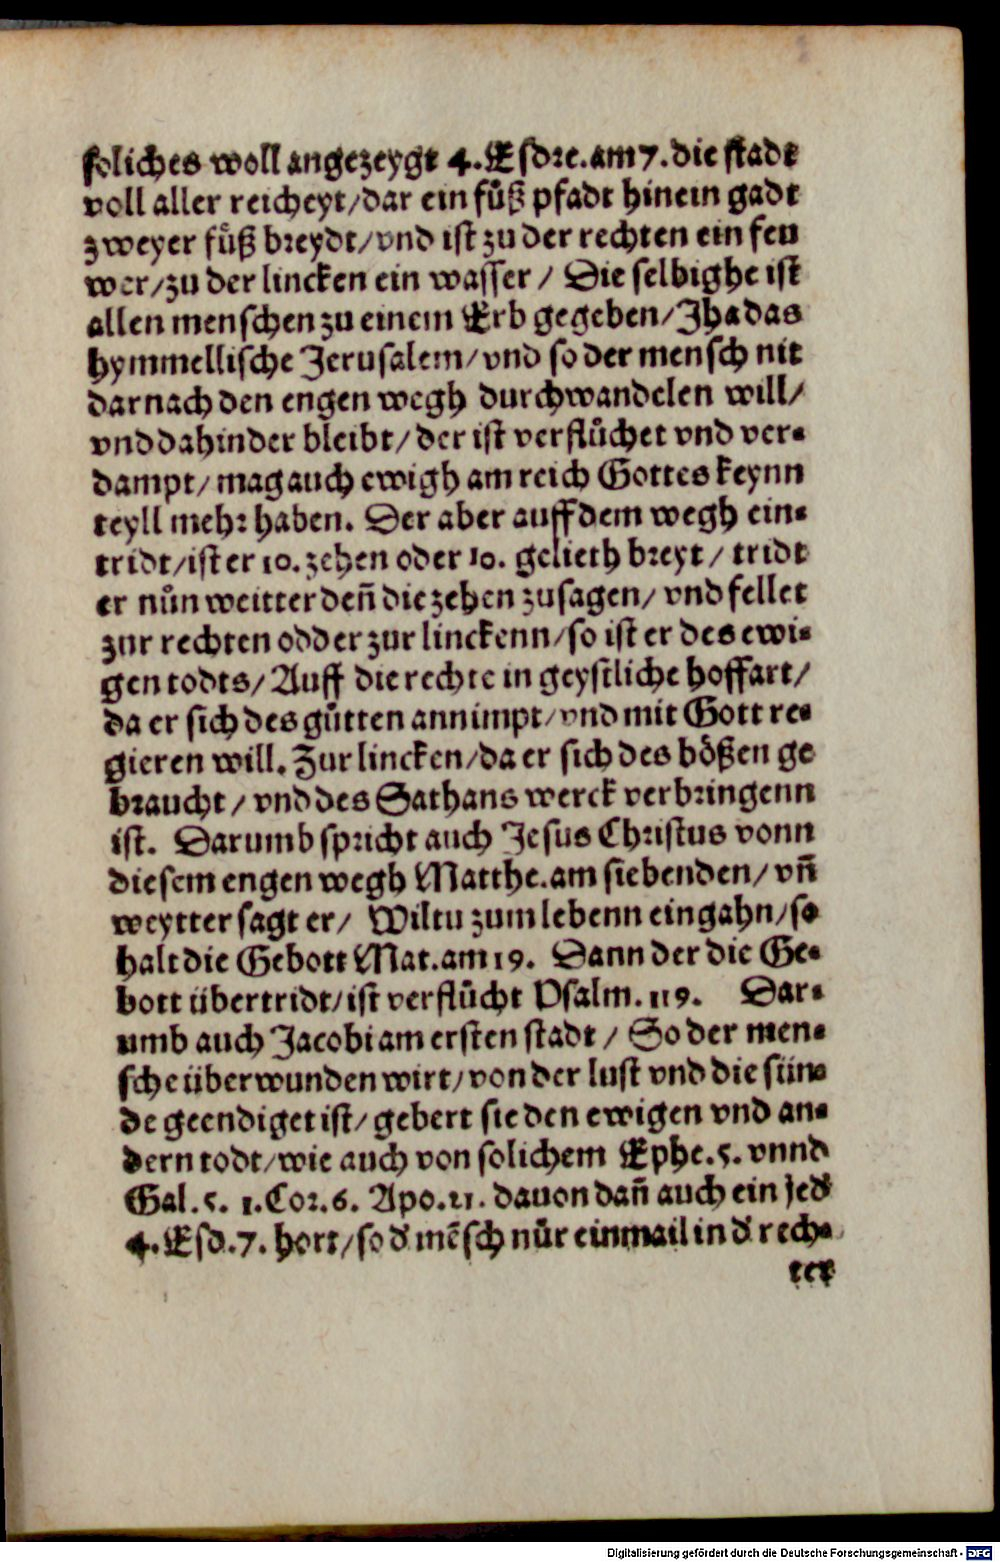 soliches woll angezeygt 4. Esdre. am 7. die stadt
voll aller reicheyt/ dar ein fůß pfadt hinein gadt
zweyer fůß breydt/ vnd ist zu der rechten ein feu
wer/ zu der lincken ein wasser / Die selbighe ist
allen menschen zu einem Erb gegeben/ Jha das
hymmellische Jerusalem/ vnd so der mensch nit
darnach den engen wegh durchwandelen will/
vnd dahinder bleibt/ der ist verflůchet vnd ver-
dampt/ mag auch ewigh am reich Gottes keynn
teyll mehr haben. Der aber auff dem wegh ein-
tridt/ ist er 10. zehen oder 10. gelieth breyt / tridt
er nůn weitter deñ die zehen zusagen/ vnd fellet
zur rechten odder zur linckenn/ so ist er des ewi-
gen todts/ Auff die rechte in geystliche hoffart/
da er sich des gůtten annimpt/ vnd mit Gott re-
gieren will. Zur lincken/ da er sich des bößen ge
braucht / vnd des Sathans werck verbringenn
ist. Darumb spricht auch Jesus Christus vonn
diesem engen wegh Matthe. am siebenden/ vñ
weytter sagt er/ Wiltu zum lebenn eingahn/ so
halt die Gebott Mat. am 19. Dann der die Ge-
bott übertridt/ ist verflůcht Psalm. 119. Dar-
umb auch Jacobi am ersten stadt / So der men-
sche überwunden wirt/ von der lust vnd die sün-
de geendiget ist/ gebert sie den ewigen vnd an-
dern todt/ wie auch von solichem Ephe. 5. vnnd
Gal. 5. 1. Cor. 6. Apo. 21. dauon dañ auch ein jed̕
4. Esd. 7. hort/ so d̕ mēsch nůr einmail in d̕ rech-
ter
Digitalisierung gefördert durch die Deutsche Forschungsgemeinschaft - DFG